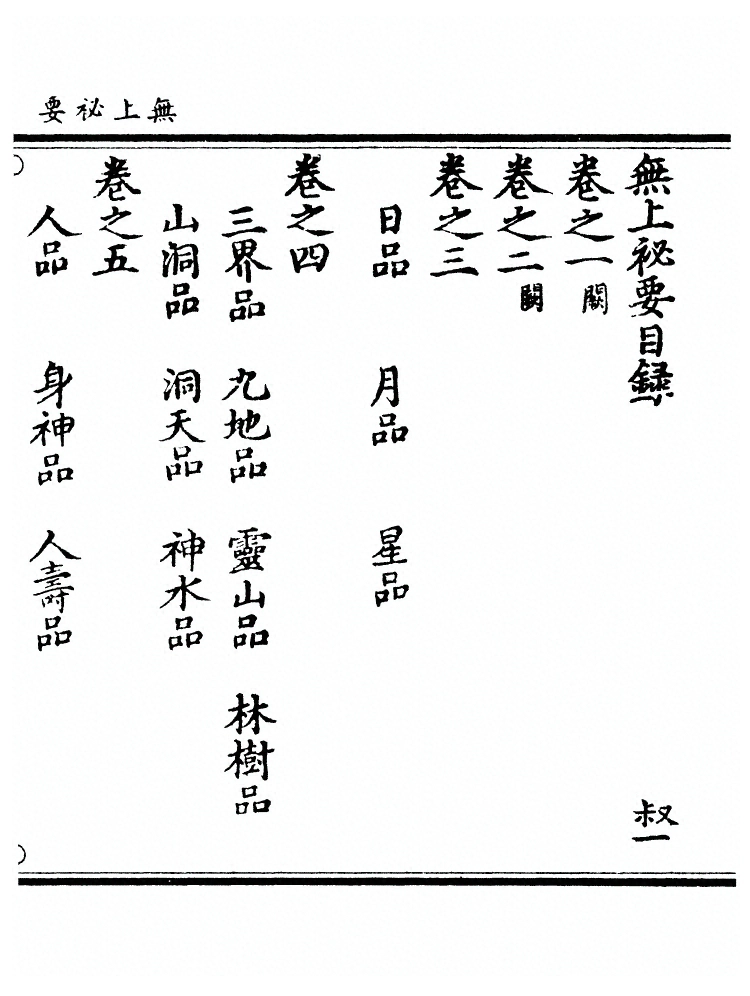 無上祕要
無上祕要目錄
叔一
卷之一闕
卷之二闕
卷之三
日品 月品 星品
卷之四
三界品 九地品 靈山品 林樹品
山洞品 洞天品 神水品
卷之五
人品 身神品 人壽品